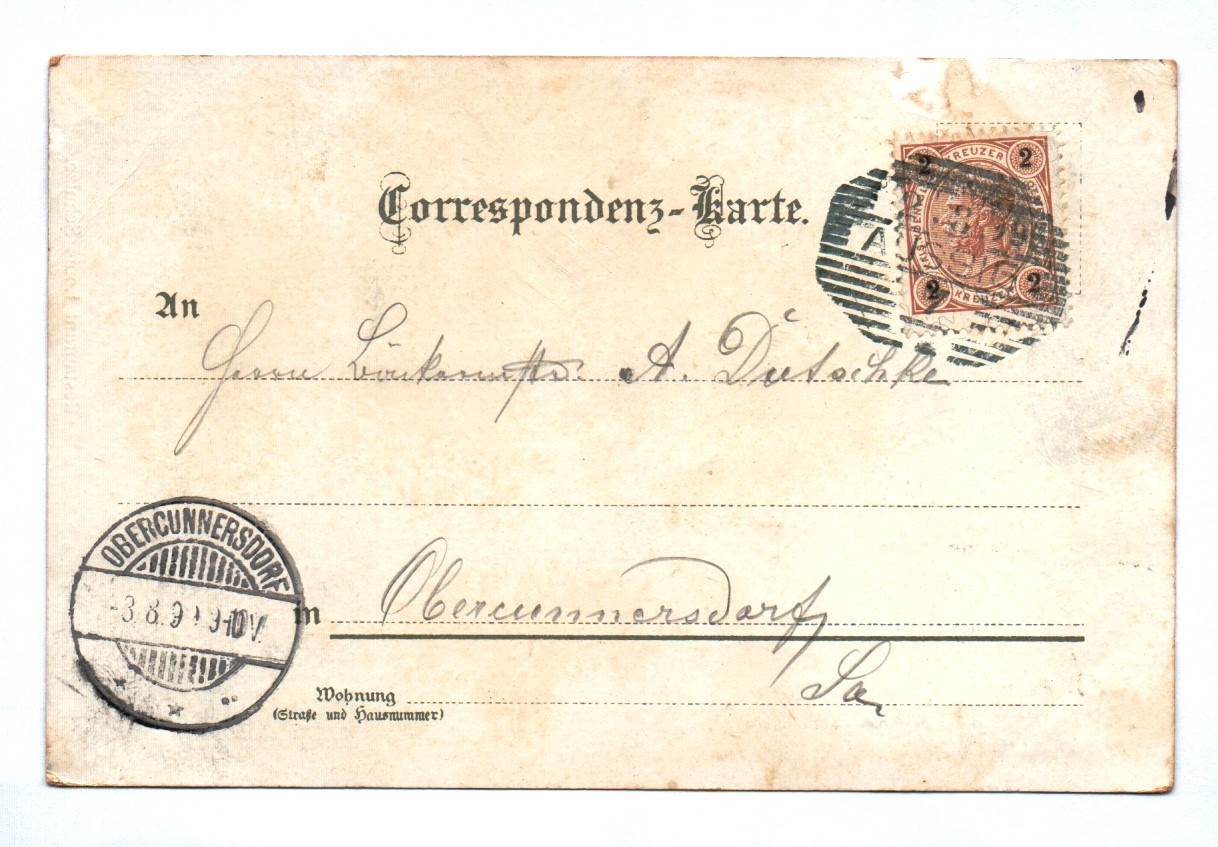 Correspondenz-Karte.
2 KREUZER 2
2 KREUZER 2
An
Herrn A. Dutschke
OBERCUNNERSDORF
-3 8 9 9-10 V.
in Obercunnersdorf
Sa
Wohnung
(Straße und Hausnummer)